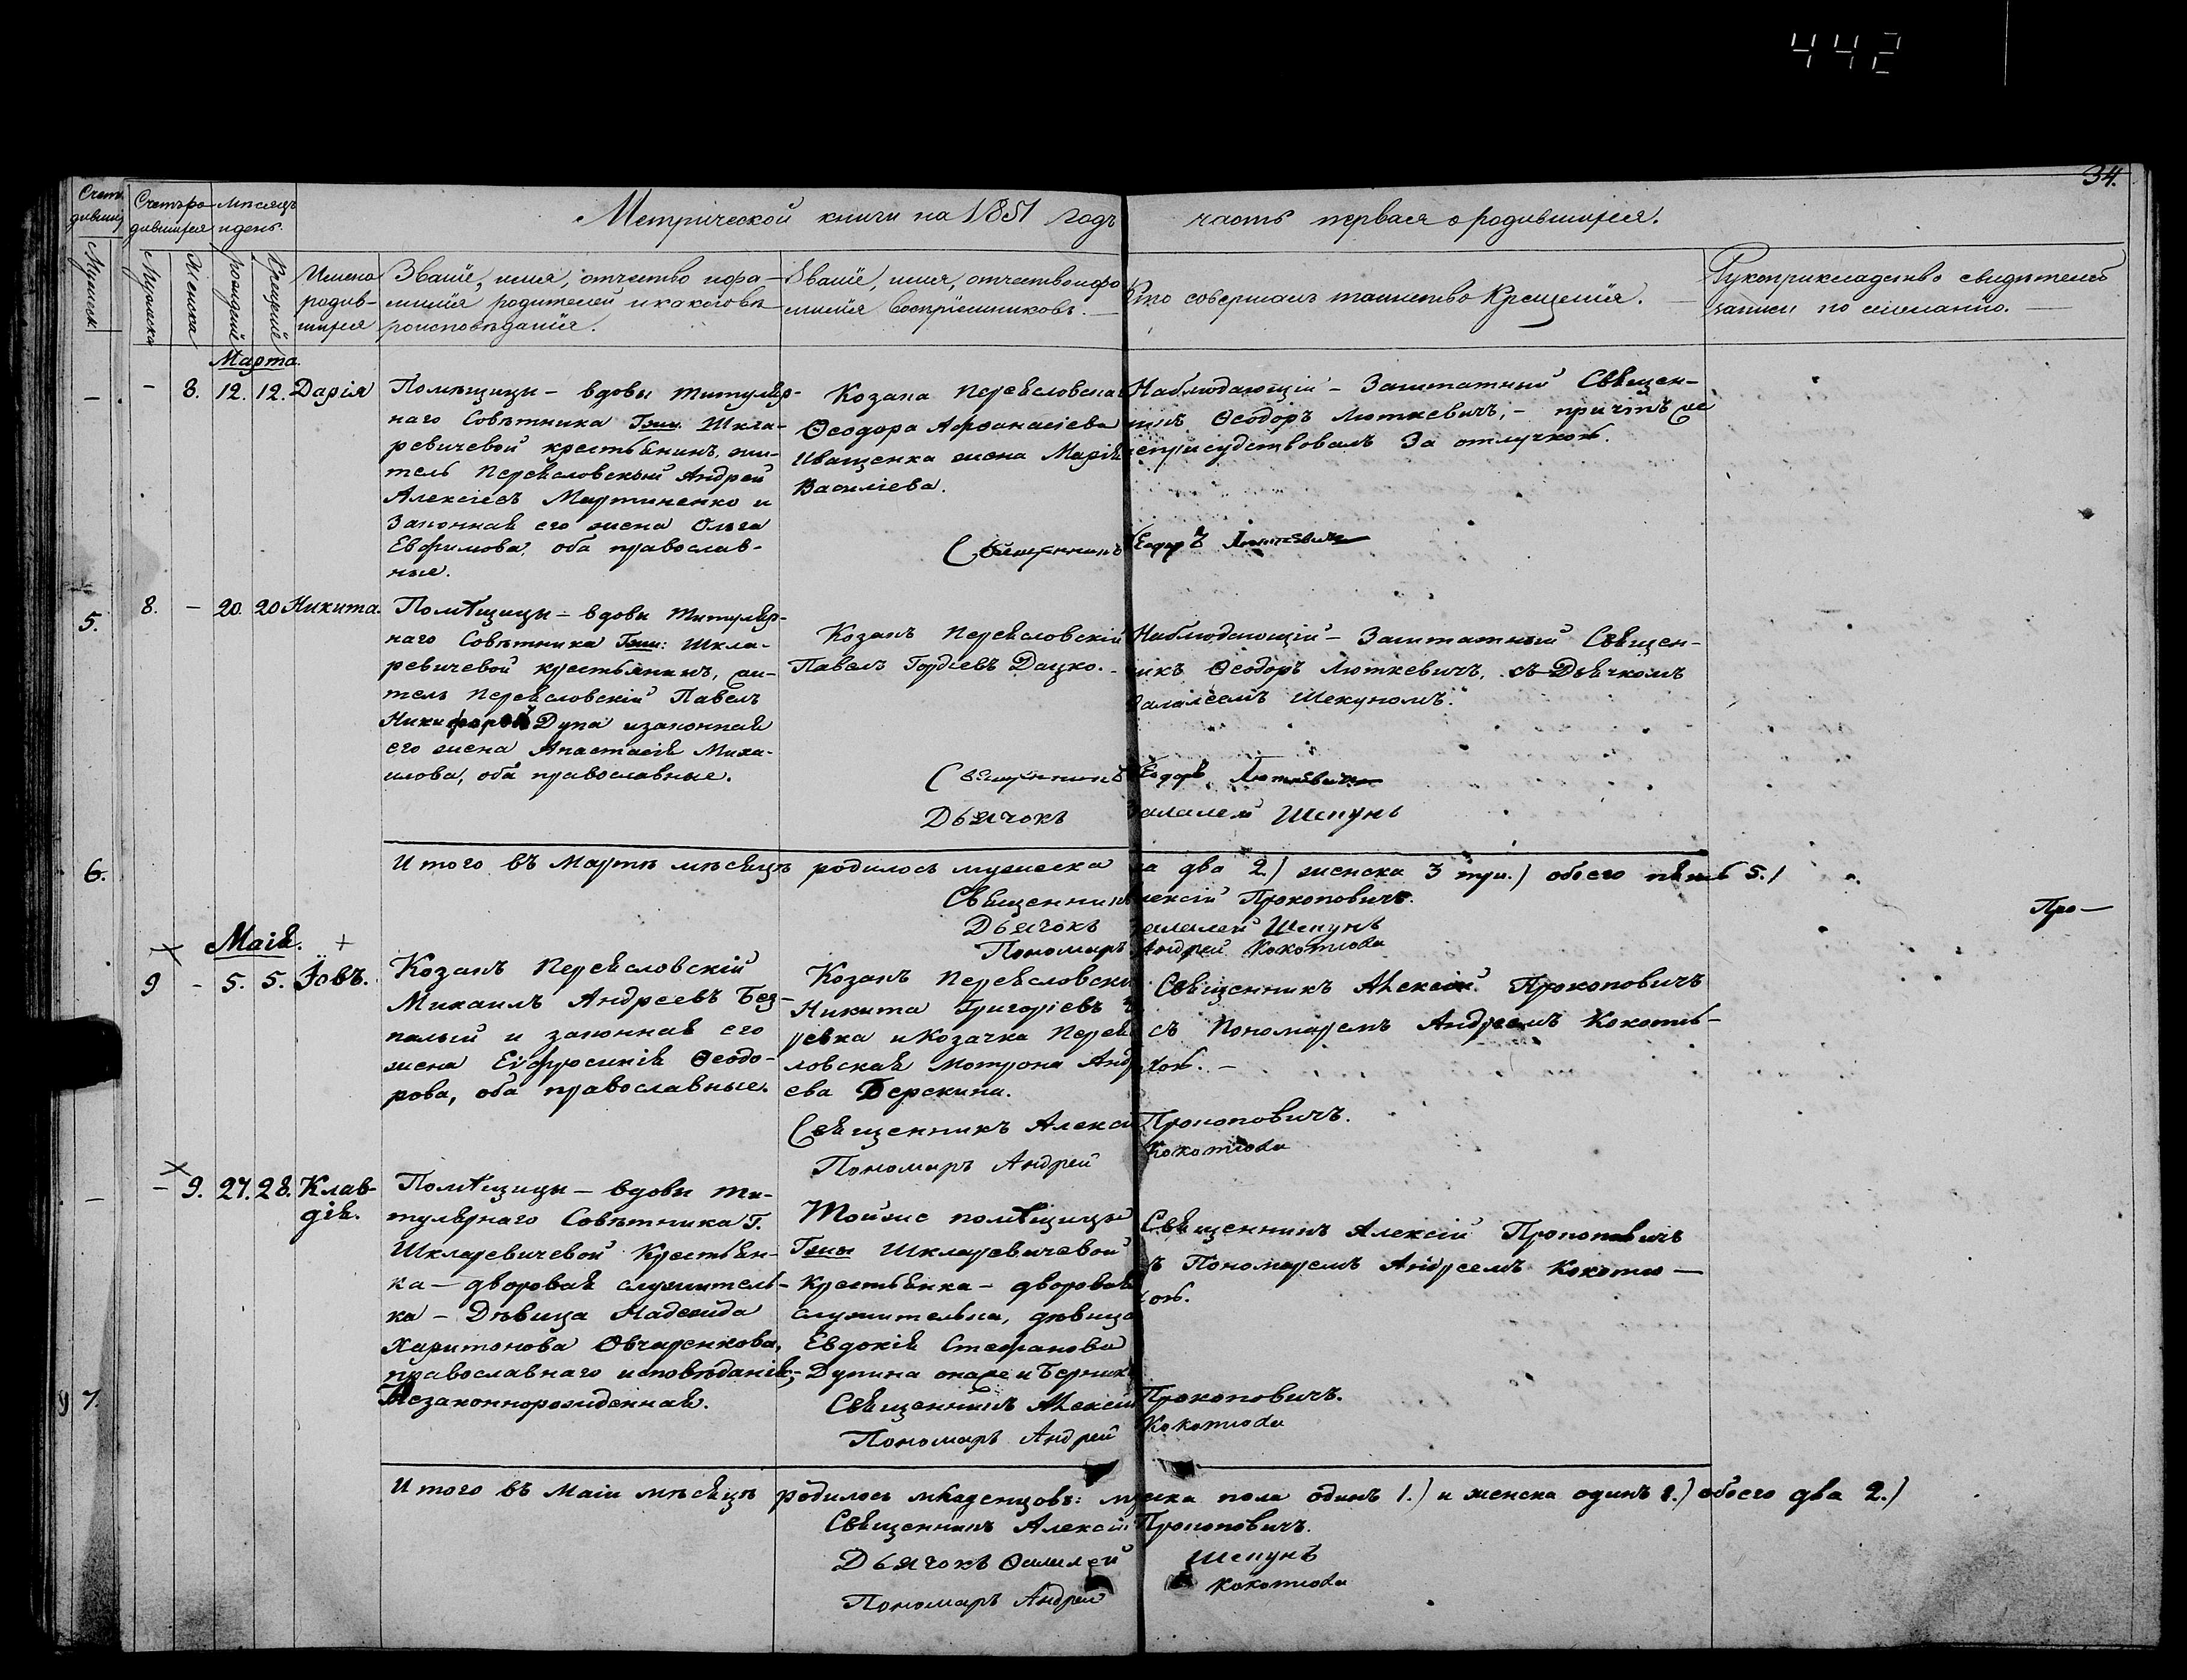 442
34.
Метрической книги на 1851 годъ часть первая о родившихся.
Счетъ ро-
дившихся
Мужеска
Женска
Мѣсяцъ
и день.
рожденія
Крещенія
Имена
родив-
шихся
Званіе, имя, отчество и фа-
милія родителей и какого вѣ-
роисповѣданія.
Званіе, имя, отчество и фа
милія воспріемниковъ.
Кто совершалъ таинство Крещенія.
Рукоприкладство свидѣтелей
записи по желанію.
Марта.
- 8. 12. 12. Дарія
Помѣщицы - вдовы титуляр-
наго Совѣтника Гжи Шкля-
ревичевой крестьянинъ, жи-
тель Переясловскій Андрей
Алексіевъ Мартиненко и
Законная его жена Ольга
Евфимова, оба православ-
ные.
Козака Переясловска
Ѳеодора Афонасіева
Иващенка жена Марія
Василіева.
Наблюдающій - Заштатный Священ-
никъ Ѳеодоръ Люткевичъ, - причтъ не
неприсудствовалъ За отлучкою.
Священникъ Ѳеодоръ Люткевичъ
8. - 20. 20 Никита.
Помѣщицы - вдовы титуляр-
наго Совѣтника Гжи: Шкля-
ревичевой крестьянинъ, жи-
тель Переясловскій Павелъ
Никифоровъ Дупа изаконная
его жена Анастасія Миха-
илова, оба православные.
Козакъ Переясловскій
Павелъ Гордіевъ Дацко.
Наблюдающій - Заштатный Священ-
никъ Ѳеодоръ Люткевичъ, съ Дьячкомъ
Фалалеемъ Шекуномъ.
Священникъ Ѳеодоръ Люткевичъ
Дьячокъ Фалалей Шекунъ
5.
6.
Итого въ Мартѣ мѣсяцѣ родилось мужеска пола два 2) женска 3 три.) обоего пять 5.)
Священникъ Алексій Прокоповичъ.
Дьячокъ Фалалей Шекунъ
Пономаръ Андрей Кокотюха
Про-
Маія.
9 - 5. 5. Іовъ.
Козакъ Переясловскій
Михаилъ Андреевъ Без-
палый и законная его
жена Евфросинія Ѳеодо-
рова, оба православные.
Козакъ Переясловскі
Никита Григоріевъ
ревка и Козачка Перея
ловская Мотрона Анд
ева Берекина.
Священникъ Алексій Прокоповичъ
съ Пономаремъ Андреемъ Кокотю-
хою. -
Священникъ Алексій Прокоповичъ.
Пономаръ Андрей Кокотюха
- 9. 27. 28. Клав-
дія.
Помѣщицы - вдовы ти-
тулярнаго Совѣтника Г.
Шкляревичевой Крестьян-
ка - дворовая служитель-
ка - Дѣвица Надежда
Харитонова Овчаренкова,
православнаго исповѣданія;-
Незаконнорожденная.
Тойже помѣщицы
Гжи Шкляревичевой
Крестьянка - дворовая
служителька, дѣвица
Евдокія Стефанова
Дупина онаже и Берник
Священникъ Алексій Прокоповичъ
съ Пономаремъ Андреемъ Кокотю-
хою.
Священникъ Алексій Прокоповичъ.
Пономаръ Андрей Кокотюха
7.
Итого въ Маіи мѣсяцѣ родилось младенцовъ: мужска пола одинъ 1.) и женска одинъ 1.) обоего два 2.)
Священникъ Алексій Прокоповичъ.
Дьячокъ Фалилей Шекунъ
Пономаръ Андрей Кокотюха